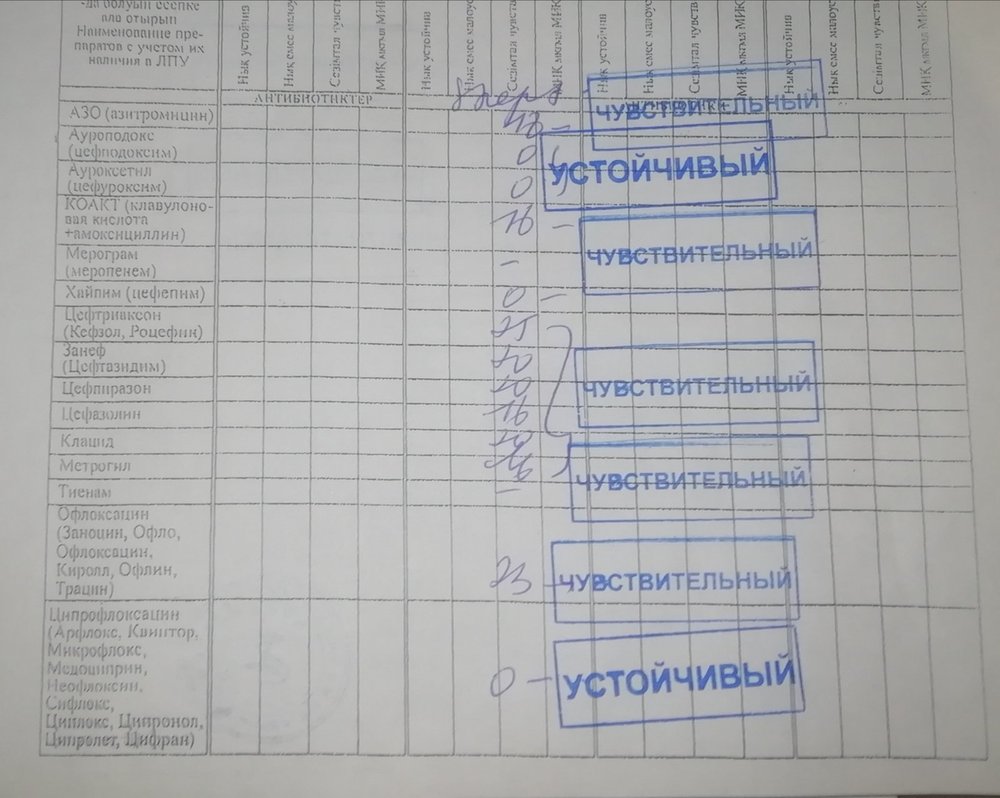 -да болуын есепке
ала отырып
Наименование пре-
паратов с учетом их
наличия в ЛПУ
Нық устойчив
Нық емес малоус
Сезімтал чувств
МИҚ мкг/мл МИК
Нық устойчив
Нық емес малоус
Сезімтал чувства
МИҚ мкг/мл МИК
Нық устойчив
Нық емес малоус
Сезімтал чувств
МИҚ мкг/мл МИК
Нық устойчив
Нық емес малоус
Сезімтал чувств
МИҚ мкг/мл МИК
АНТИБИОТИКТЕР
АЗО (азитромицин)
ЧУВСТВИТЕЛЬНЫЙ
Ауроподокс
(цефподоксим)
0
УСТОЙЧИВЫЙ
Ауроксетил
(цефуроксим)
0
КОАКТ (клавулоно-
вая кислота
+амоксициллин)
16 –
ЧУВСТВИТЕЛЬНЫЙ
Мерограм
(меропенем)
–
Хайпим (цефепим)
0 –
Цефтриаксон
(Кефзол, Роцефин)
25
Занеф
(Цефтазидим)
20
ЧУВСТВИТЕЛЬНЫЙ
Цефпиразон
20
Цефазолин
16
Клацид
20
Метрогил
16
ЧУВСТВИТЕЛЬНЫЙ
Тиенам
–
Офлоксацин
(Заноцин, Офло,
Офлоксацин,
Киролл, Офлин,
Трацин)
23 –
ЧУВСТВИТЕЛЬНЫЙ
Ципрофлоксацин
(Арфлокс, Квинтор,
Микрофлокс,
Медоциприн,
Неофлоксин,
Сифлокс,
Циплокс, Ципронол,
Ципролет, Цифран)
0 –
УСТОЙЧИВЫЙ